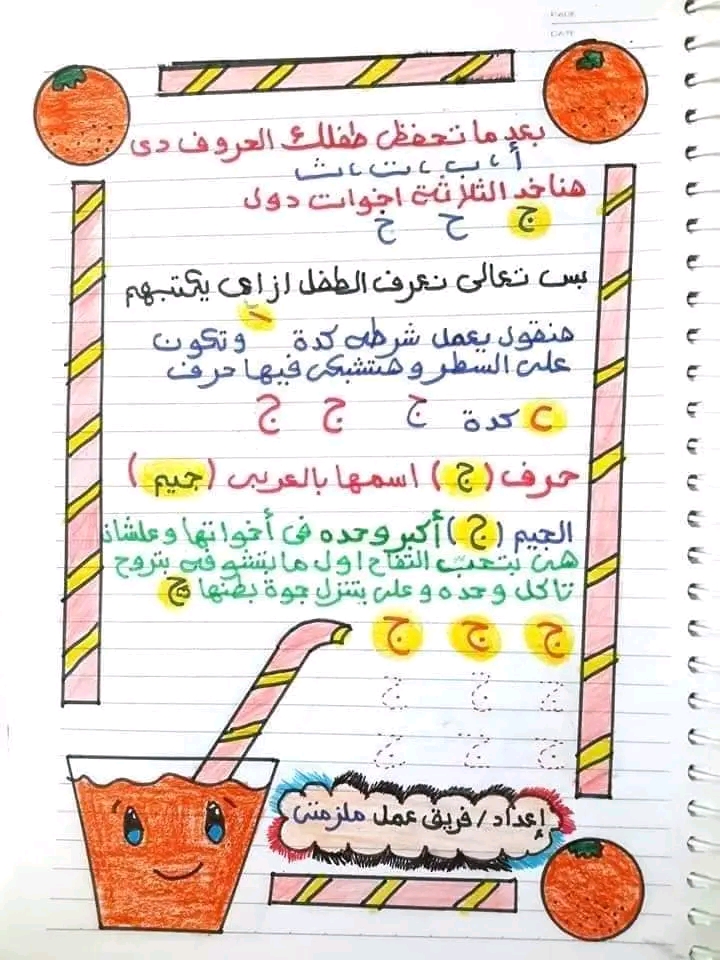 بعد ما تحفظي طفلك الحروف دى
أ ، ب ، ت ، ث
هناخد الثلاثة اخوات دول
ج ح خ
بس تعالى نعرف الطفل ازاى يكتبهم
هنقول يعمل شرطه كدة وتكون
على السطر وهنشبكى فيها حرف
ح كدة ج ج ج
حرف (ج) اسمها بالعربى (جيم)
الجيم (ج) أكبر وحده فى أخواتها وعلشان
هى بتحب التفاح اول ما بتشوفه بتروح
تاكل وحده وعلى بتنزل جوة بطنها ج
ج ج ج
ج ج ج
ج ج ج
إعداد/ فريق عمل ملزمتى